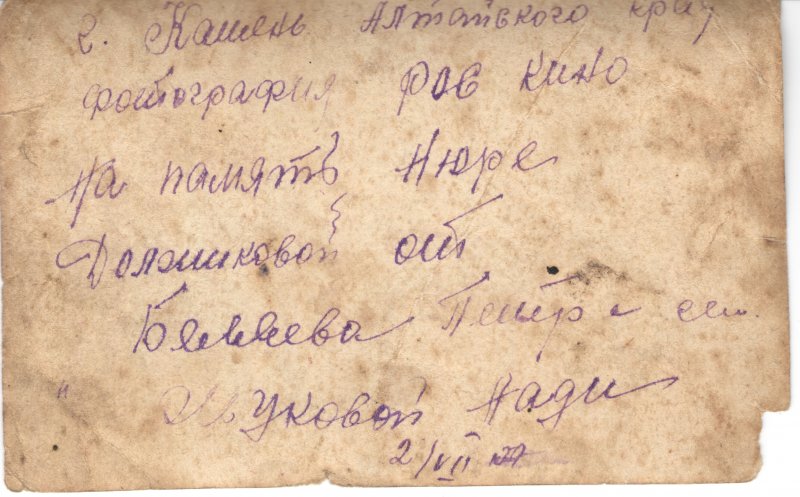 г. Камень Алтайского края
фотография Ров кино
На память Нюре
Долашковой от
Беляева Петра
Жуковой Нади
2/VII